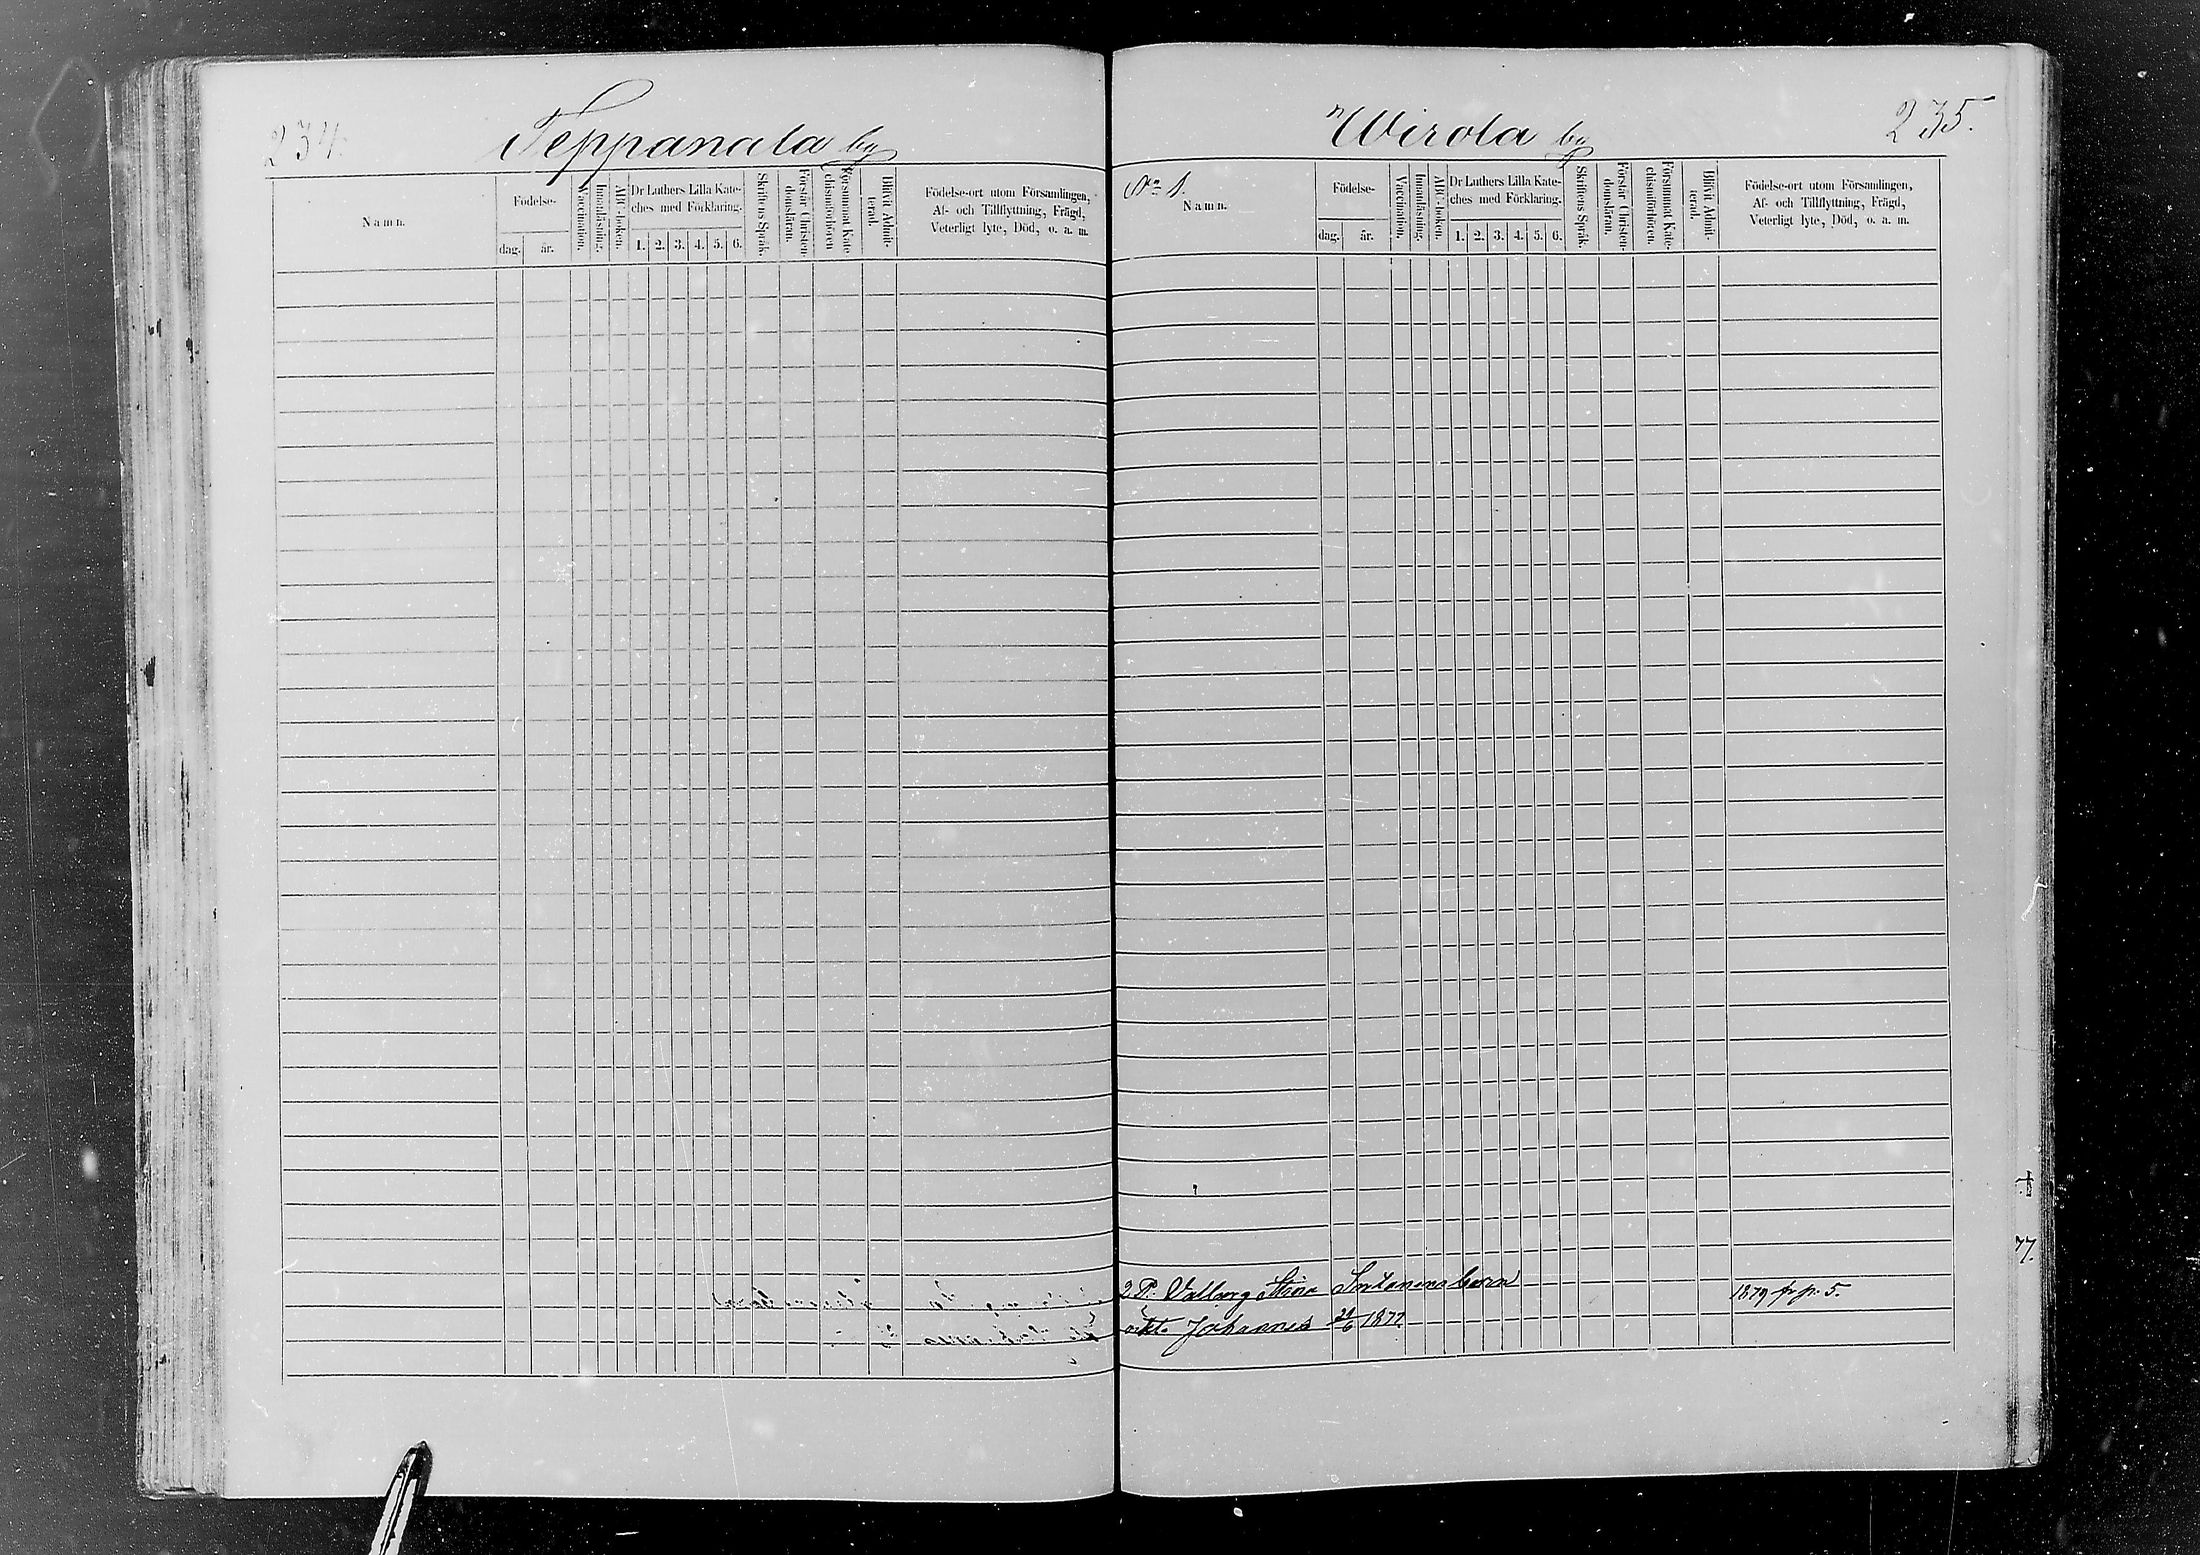 234.
Teppanala by
Namn.
Födelse-
dag.
år.
Vaccination.
Innanläsning.
ABC-boken.
Dr Luthers Lilla Kate-
ches med Förklaring.
1. 2. 3. 4. 5. 6.
Skriftens Språk.
Förstår Christen-
domsläran.
Försummat Kate-
chismiförhören
Blifvit Admit-
terad.
Födelse-ort utom Församlingen,
Af- och Tillflyttning, Frägd,
Veterligt lyte, Död, o. a. m.
235.
Wirola by
No 1.
Namn.
Födelse-
dag.
år.
Vaccination.
Innanläsning.
ABC-boken.
Dr Luthers Lilla Kate-
ches med Förklaring.
1. 2. 3. 4. 5. 6.
Skriftens Språk.
Förstår Christen-
domsläran.
Försummat Kate-
chismiförhören.
Blifvit Admit-
terad.
Födelse-ort utom Församlingen,
Af- och Tillflyttning, Frägd,
Veterligt lyte, Död, o. a. m.
2 P. Valborg Stina barn 1879 fr p. 5.
Johannes 1872
77.